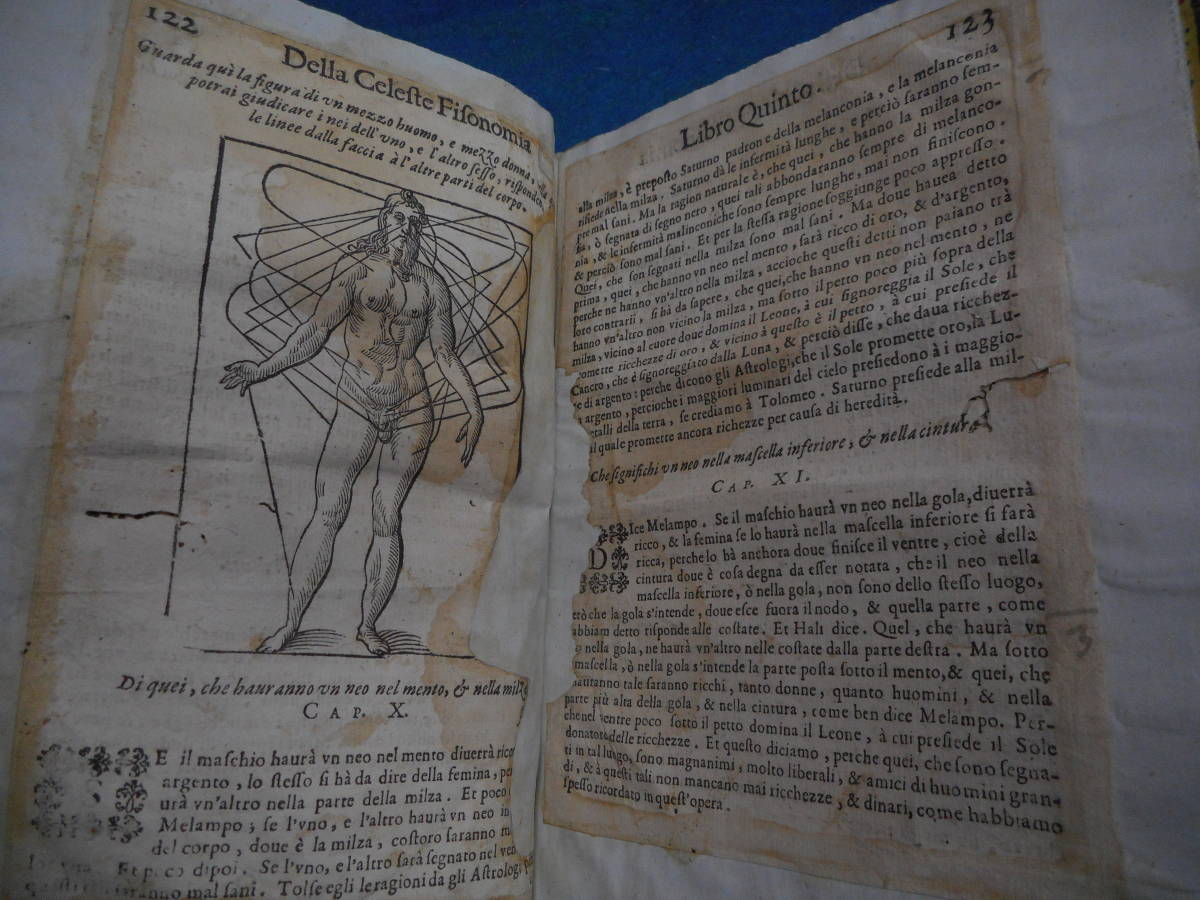 122
Della Celeste Fisonomia
Guarda quì la figura di vn mezzo huomo, e mezzo donna,
potrai giudicare i nei dell'vno, e l'altro sesso, rispondeno
le linee dalla faccia à l'altre parti del corpo.
Di quei, che hauranno vn neo nel mento, & nella milza
CAP. X.
E il maschio haurà vn neo nel mento diuerrà ricco
argento, lo stesso si hà da dire della femina, per
urà vn'altro nella parte della milza. Et poco
Melampo; se l'vno, e l'altro haurà vn neo in
del corpo, doue è la milza, costoro saranno m
dipoi. Se l'vno, e l'altro sarà segnato nel ven
mal sani. Tolse egli le ragioni da gli Astrologi,
123
Libro Quinto.
alla milza, è preposto Saturno padron e della melanconia, e la melanconia
risiede nella milza. Saturno dà le infermità lunghe, e perciò saranno sem-
pre mal sani. Ma la ragion naturale è, che quei, che hanno la milza gon-
fia, ò segnata di segno nero, quei tali abbondaranno sempre di melanco-
nia, & le infermità malinconiche sono sempre lunghe, mai non finiscono.
& perciò sono mal sani. Et per la stessa ragione soggiunge poco appresso.
Quei, che son segnati nella milza sono mal sani. Ma doue hauea detto
prima, quei, che hanno vn neo nel mento, sarà ricco di oro, & d'argento,
perche ne hanno vn'altro nella milza, accioche questi detti non paiano trà
loro contrarii, si hà da sapere, che quei, che hanno vn neo nel mento, ne
hanno vn'altro non vicino la milza, ma sotto il petto poco più sopra della
milza, vicino al cuore doue domina il Leone, à cui signoreggia il Sole, che
promette ricchezze di oro, & vicino à questo è il petto, à cui presiede il
Cancro, che è signoreggiato dalla Luna, & perciò disse, che daua ricchez-
ze di argento: perche dicono gli Astrologi, che il Sole promette oro, la Lu-
a argento, percioche i maggiori luminari del cielo presiedono à i maggio-
etalli della terra, se crediamo à Tolomeo. Saturno presiede alla mil-
il quale promette ancora richezze per causa di heredità.
Che significhi vn neo nella mascella inferiore, & nella cintura
CAP. XI.
DIce Melampo. Se il maschio haurà vn neo nella gola, diuerrà
ricco, & la femina se lo haurà nella mascella inferiore si farà
ricca, perche lo hà anchora doue finisce il ventre, cioè della
cintura doue è cosa degna da esser notata, che il neo nella
mascella inferiore, ò nella gola, non sono dello stesso luogo,
erò che la gola s'intende, doue esce fuora il nodo, & quella parte, come
abbiam detto risponde alle costate. Et Hali dice. Quel, che haurà vn
o nella gola, ne haurà vn'altro nelle costate dalla parte destra. Ma sotto
mascella, ò nella gola s'intende la parte posta sotto il mento, & quei, che
hauranno tale saranno ricchi, tanto donne, quanto huomini, & nella
parte più alta della gola, & nella cintura, come ben dice Melampo. Per-
che nel ventre poco sotto il petto domina il Leone, à cui presiede il Sole
donatore delle ricchezze. Et questo diciamo, perche quei, che sono segna-
ti in tal luogo, sono magnanimi, molto liberali, & amici di huomini gran-
di, & à questi tali non mancano mai ricchezze, & dinari, come habbiamo
spesso ricordato in quest'opera.
3